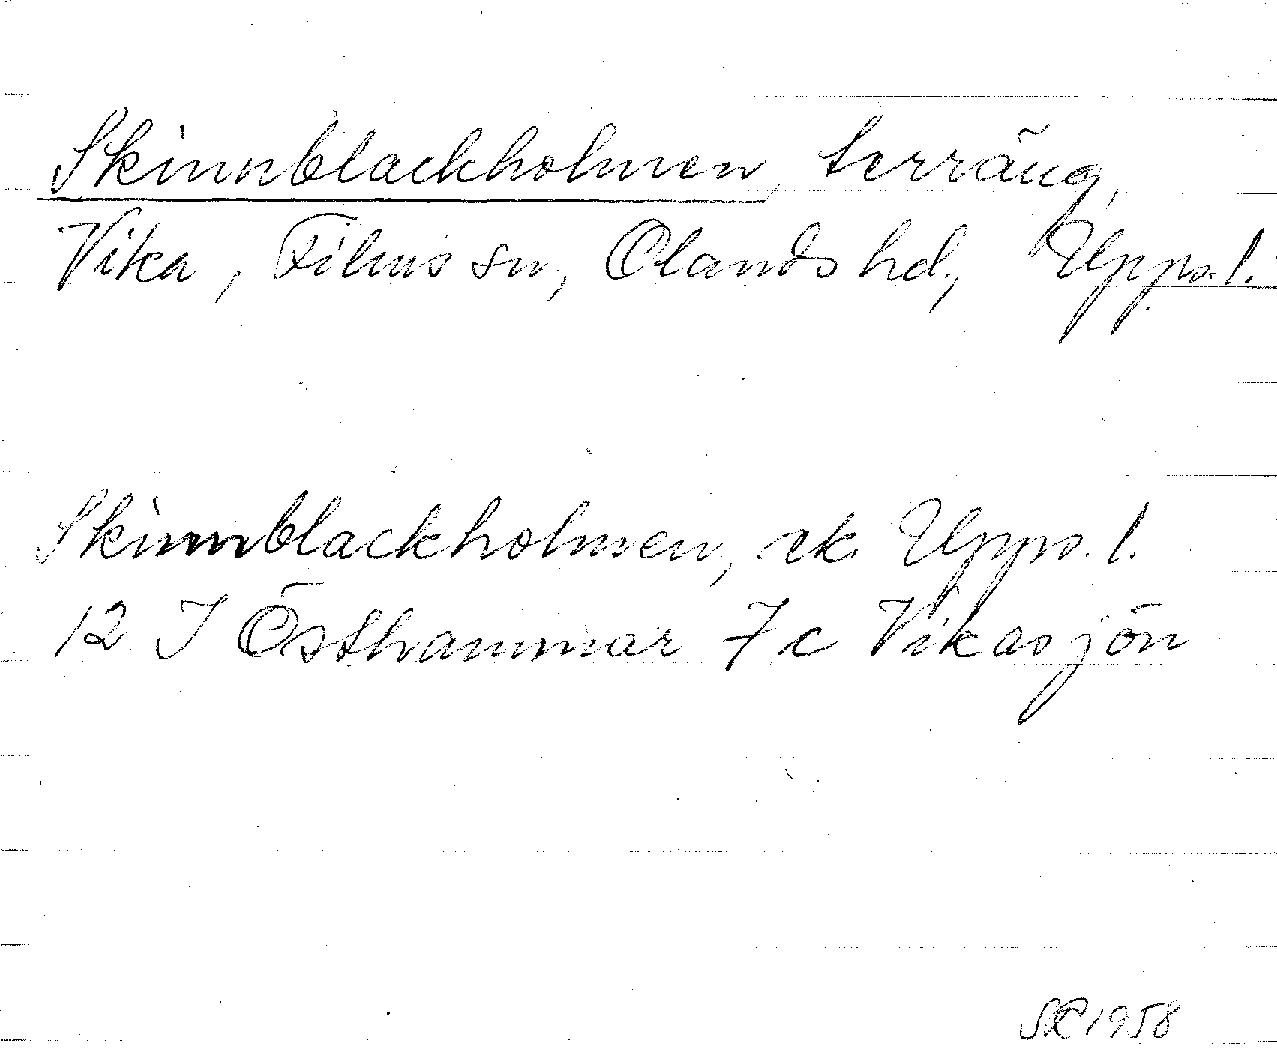 Skinnblackholmen, terräng,
Vika, Films sn, Olands hd, Upps. l.
Skinnblackholmen, ek. Upps. l.
12 I Östhammar 7 c Vikasjön
1958